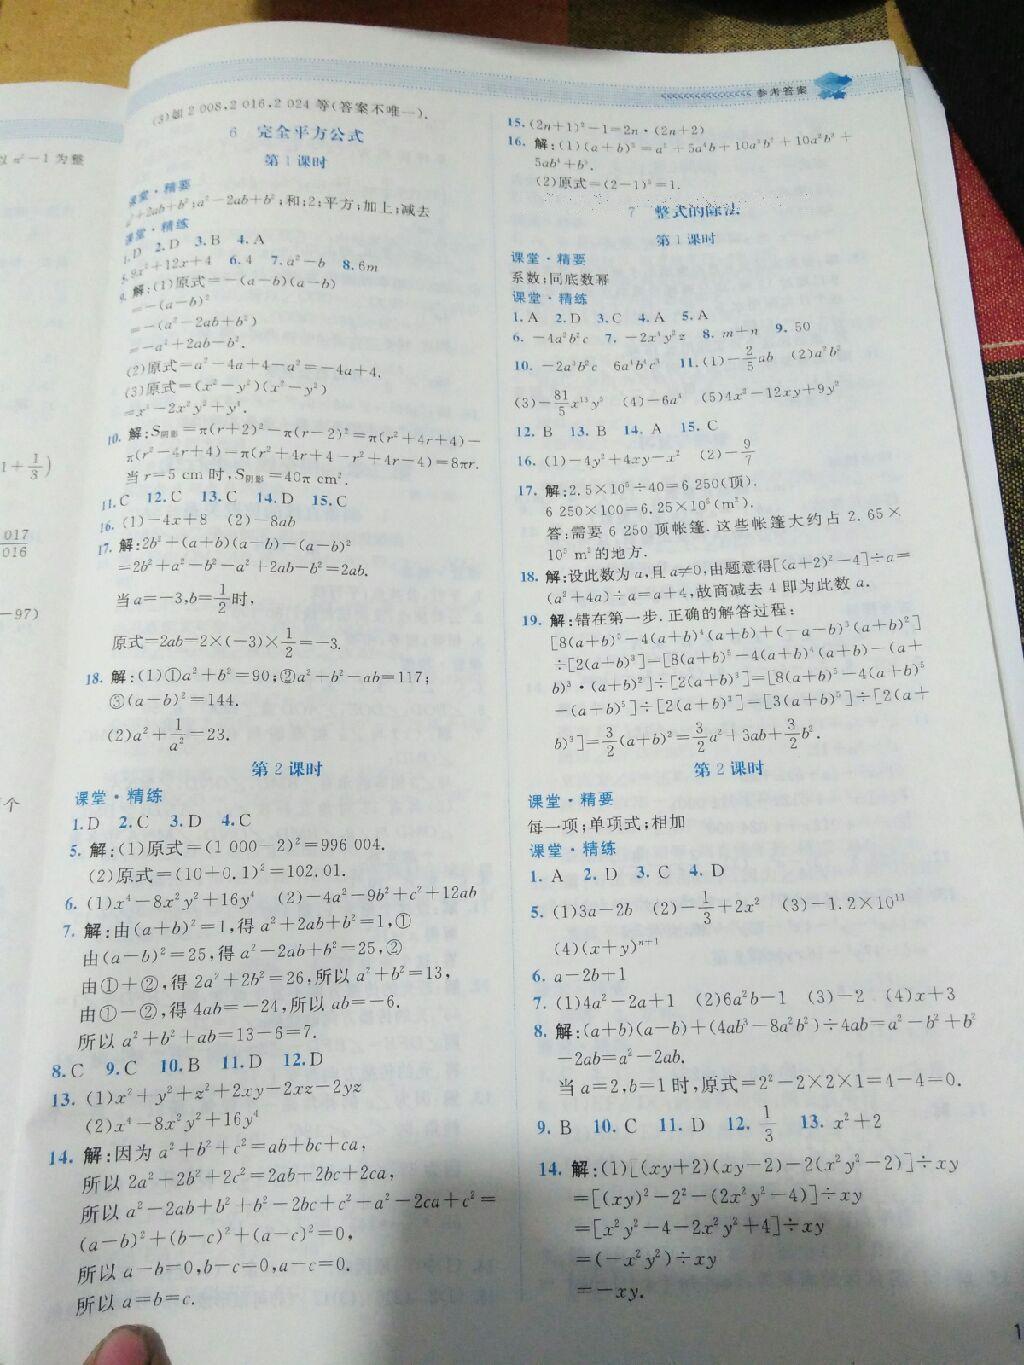 参考答案
(3)如 2 008,2 016,2 024 等(答案不唯一).
6 完全平方公式
第 1 课时
课堂·精要
a²+2ab+b²;a²-2ab+b²;和;2;平方;加上;减去
课堂·精练
1.D 2.D 3.B 4.A
5.9x²+12x+4 6.4 7.a²-b 8.6m
9.解:(1)原式=-(a-b)(a-b)
=-(a-b)²
=-(a²-2ab+b²)
=-a²+2ab-b².
(2)原式=a²-4a+4-a²=-4a+4.
(3)原式=(x²-y²)(x²-y²)
=x⁴-2x²y²+y⁴.
10.解:S阴影=π(r+2)²-π(r-2)²=π(r²+4r+4)-
π(r²-4r+4)=π(r²+4r+4-r²+4r-4)=8πr.
当 r=5 cm 时,S阴影=40π cm².
11.C 12.C 13.C 14.D 15.C
16.(1)-4x+8 (2)-8ab
17.解:2b²+(a+b)(a-b)-(a-b)²
=2b²+a²-b²-a²+2ab-b²=2ab.
当 a=-3,b=1/2时,
原式=2ab=2×(-3)×1/2=-3.
18.解:(1)①a²+b²=90;②a²+b²-ab=117;
③(a-b)²=144.
(2)a²+1/a²=23.
第 2 课时
课堂·精练
1.D 2.C 3.D 4.C
5.解:(1)原式=(1 000-2)²=996 004.
(2)原式=(10+0.1)²=102.01.
6.(1)x⁴-8x²y²+16y⁴ (2)-4a²-9b²+c²+12ab
7.解:由(a+b)²=1,得 a²+2ab+b²=1,①
由(a-b)²=25,得 a²-2ab+b²=25,②
由①+②,得 2a²+2b²=26,所以 a²+b²=13,
由①-②,得 4ab=-24,所以 ab=-6.
所以 a²+b²+ab=13-6=7.
8.C 9.C 10.B 11.D 12.D
13.(1)x²+y²+z²+2xy-2xz-2yz
(2)x⁴-8x²y²+16y⁴
14.解:因为 a²+b²+c²=ab+bc+ca,
所以 2a²+2b²+2c²=2ab+2bc+2ca,
所以 a²-2ab+b²+b²-2bc+c²+a²-2ca+c²=
(a-b)²+(b-c)²+(a-c)²=0,
所以 a-b=0,b-c=0,a-c=0.
所以 a=b=c.
15.(2n+1)²-1=2n·(2n+2)
16.解:(1)(a+b)⁵=a⁵+5a⁴b+10a³b²+10a²b³+
5ab⁴+b⁵.
(2)原式=(2-1)⁵=1.
7 整式的除法
第 1 课时
课堂·精要
系数;同底数幂
课堂·精练
1.A 2.D 3.C 4.A 5.A
6.-4a²b²c 7.-2x⁴y²z 8.m+n 9.50
10.-2a³b²c 6a⁴b⁴c³ 11.(1)-2/5ab (2)a²b²
(3)-81/5x¹³y² (4)-6a⁴ (5)4x²-12xy+9y²
12.B 13.B 14.A 15.C
16.(1)-4y²+4xy-x² (2)-9/7
17.解:2.5×10⁵÷40=6 250(顶).
6 250×100=6.25×10⁵(m²).
答:需要 6 250 顶帐篷.这些帐篷大约占 2.65×
10⁵ m²的地方.
18.解:设此数为 a,且 a≠0,由题意得[(a+2)²-4]÷a=
(a²+4a)÷a=a+4,故商减去 4 即为此数 a.
19.解:错在第一步.正确的解答过程:
[8(a+b)⁵-4(a+b)⁴(a+b)+(-a-b)³(a+b)²]
÷[2(a+b)³]=[8(a+b)⁵-4(a+b)⁴(a+b)-(a+
b)³·(a+b)²]÷[2(a+b)³]=[8(a+b)⁵-4(a+b)⁵
-(a+b)⁵]÷[2(a+b)³]=[3(a+b)⁵]÷[2(a+
b)³]=3/2(a+b)²=3/2a²+3ab+3/2b².
第 2 课时
课堂·精要
每一项;单项式;相加
课堂·精练
1.A 2.D 3.C 4.D
5.(1)3a-2b (2)-1/3+2x² (3)-1.2×10¹¹
(4)(x+y)ⁿ⁺¹
6.a-2b+1
7.(1)4a²-2a+1 (2)6a²b-1 (3)-2 (4)x+3
8.解:(a+b)(a-b)+(4ab³-8a²b²)÷4ab=a²-b²+b²
-2ab=a²-2ab.
当 a=2,b=1 时,原式=2²-2×2×1=4-4=0.
9.B 10.C 11.D 12.1/3 13.x²+2
14.解:(1)[(xy+2)(xy-2)-2(x²y²-2)]÷xy
=[(xy)²-2²-(2x²y²-4)]÷xy
=[x²y²-4-2x²y²+4]÷xy
=(-x²y²)÷xy
=-xy.